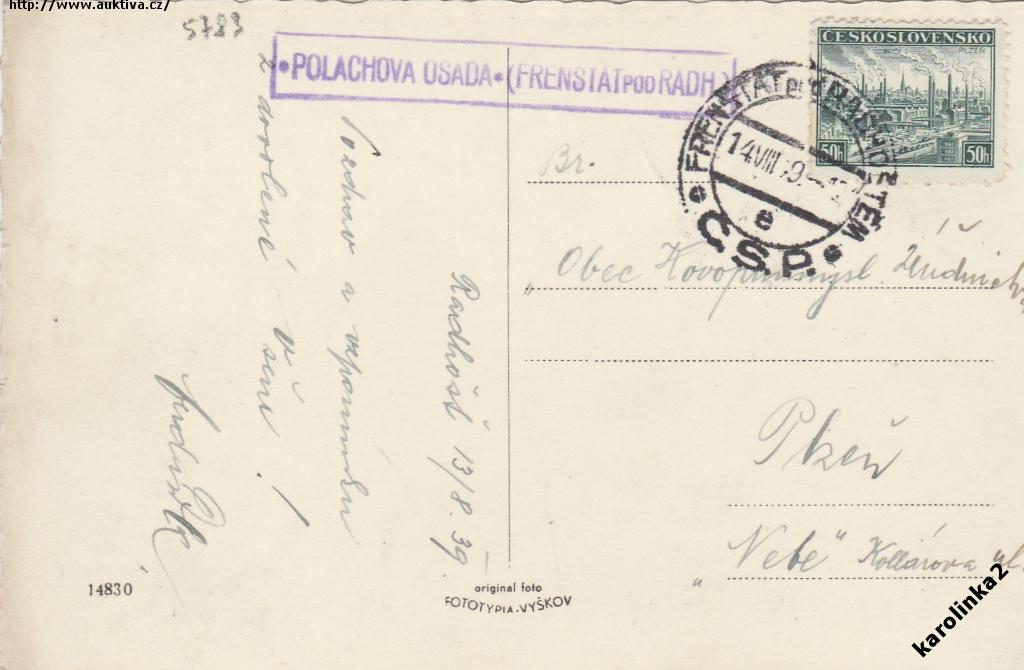 http://www.auktiva.cz/
5783
•POLACHOVA OSADA•(FRENŠTÁT POD RADH.)
ČESKOSLOVENSKO
PLZEŇ
50h 50h
FRENŠTÁT pod RADHOŠTĚM
14 VIII 39
e
Č.S.P.
Radhošť 13/8. 39.
Pozdrav a vzpomínku
z dovolené
všem!
Br.
"Obec Kovoprůmysl.
Plzeň
"Nebe" Kollárova ul.
14830
original foto
FOTOTYPIA-VYŠKOV
karolinka2